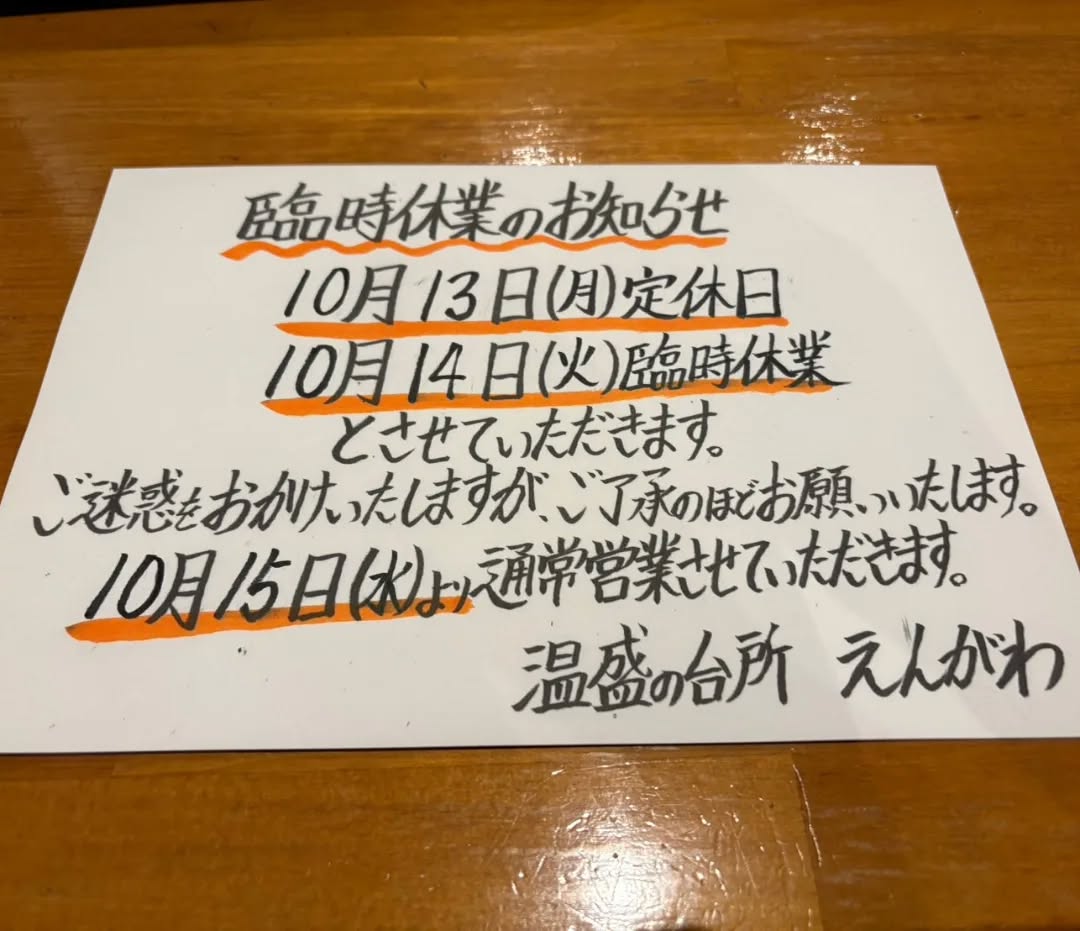 臨時休業のお知らせ
10月13日(月)定休日
10月14日(火)臨時休業
とさせていただきます。
ご迷惑をおかけいたしますが、ご了承のほどお願いいたします。
10月15日(水)より通常営業させていただきます。
温盛の台所 えんがわ